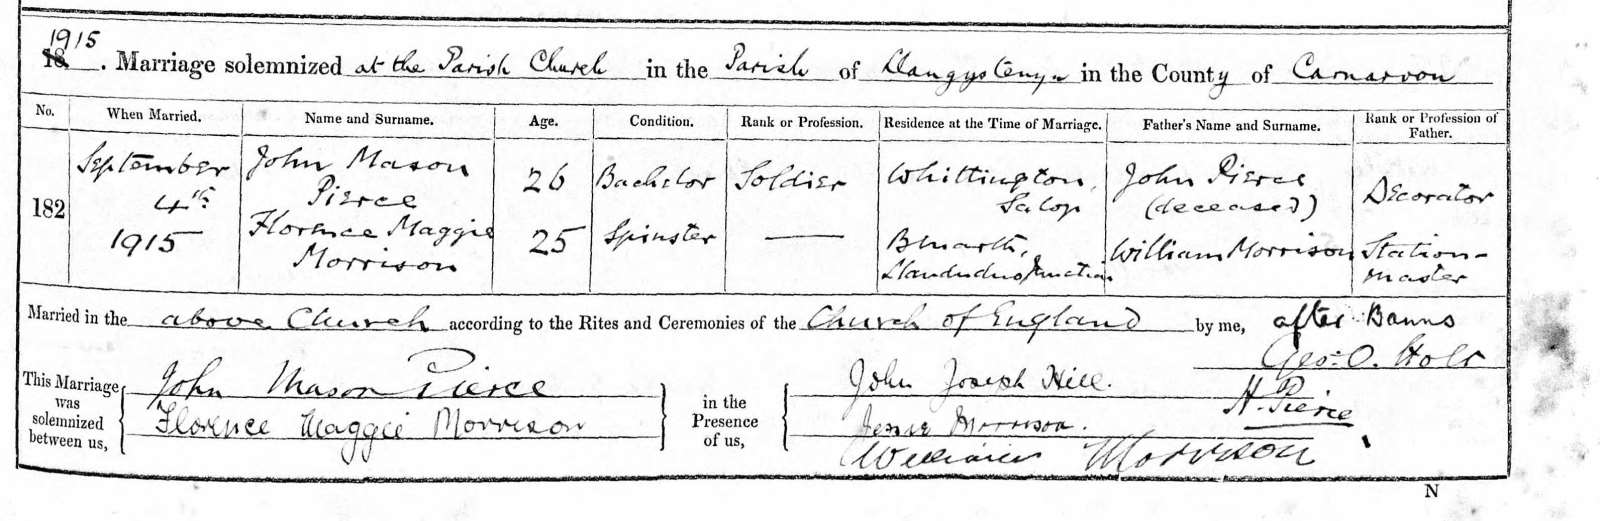 1915
18 . Marriage solemnized at the Parish Church in the Parish of Llangystenyn in the County of Carnarvon
No. When Married. Name and Surname. Age. Condition. Rank or Profession. Residence at the Time of Marriage. Father's Name and Surname. Rank or Profession of Father.
182
September 4th 1915
John Mason Pierce 26 Bachelor Soldier Whittington, Salop John Pierce (deceased) Decorator
Florence Maggie Morrison 25 Spinster — Llandudno Junction William Morrison Station-master
Married in the above Church according to the Rites and Ceremonies of the Church of England by me, after Banns
Geo. O. Holt
This Marriage was solemnized between us,
John Mason Pierce
Florence Maggie Morrison
in the Presence of us,
John Joseph Hill.
H. Pierce
Jessie Morrison.
William Morrison
N